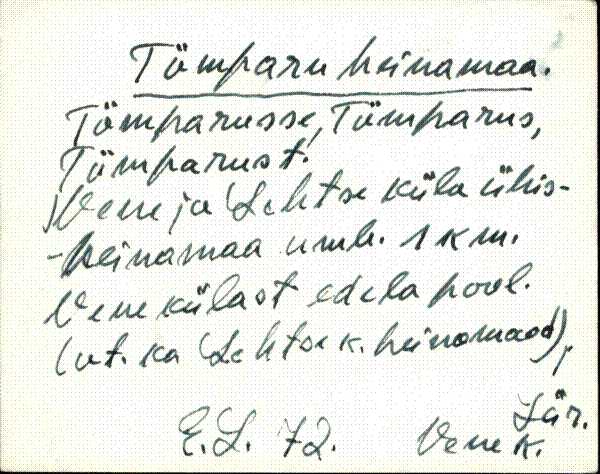 Tömparu heinamaa.
Tömparusse, Tömparus,
Tömparust.
Vene ja Lehtse küla ühis-
-heinamaa umb. 1 km.
Vene külast edela pool.
(vt. ka Lehtse k. heinamaad),
Jär.
E.L. 72. Vene k.